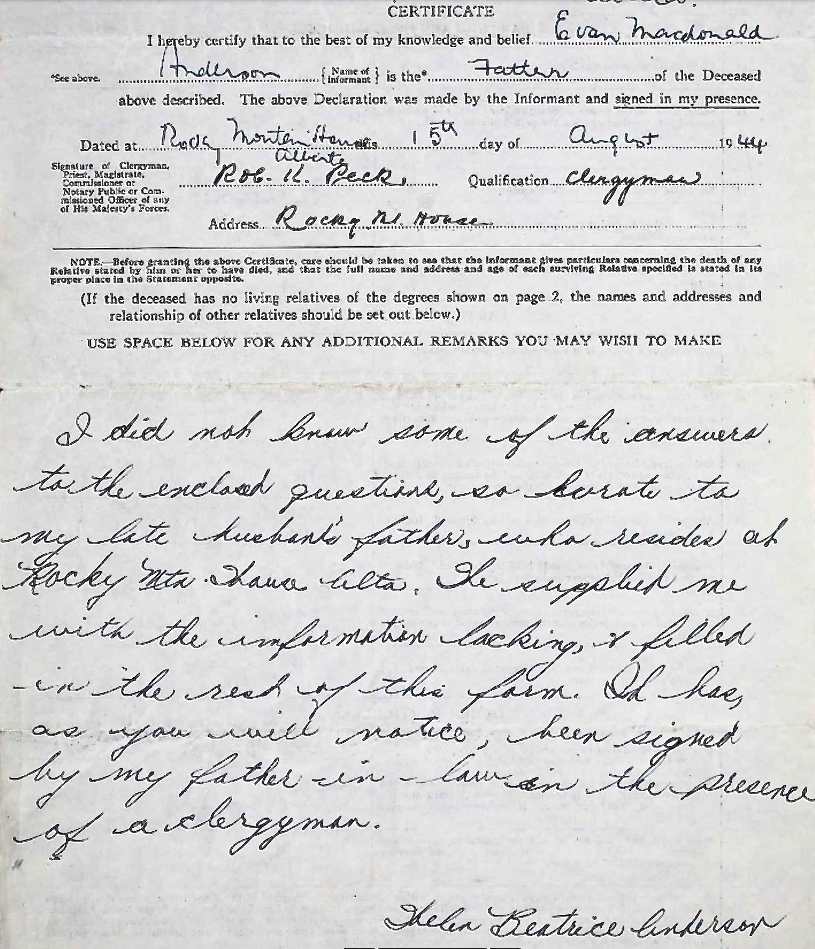 CERTIFICATE
I hereby certify that to the best of my knowledge and belief Evan Macdonald
*See above. Anderson {Name of Informant} is the* Father of the Deceased
above described. The above Declaration was made by the Informant and signed in my presence.
Dated at Rocky Montin House this 15th day of August 1944
Alberta
Signature of Clergyman,
Priest, Magistrate,
Commissioner or
Notary Public or Com-
missioned Officer of any
of His Majesty's Forces.
Rob. K. Peck, Qualification Clergyman
Address Rocky Mt. House
NOTE.—Before granting the above Certificate, care should be taken to see that the informant gives particulars concerning the death of any
Relative stated by him or her to have died, and that the full name and address and age of each surviving Relative specified is stated in its
proper place in the Statement opposite.
(If the deceased has no living relatives of the degrees shown on page 2, the names and addresses and
relationship of other relatives should be set out below.)
USE SPACE BELOW FOR ANY ADDITIONAL REMARKS YOU MAY WISH TO MAKE
I did not know some of the answers
to the enclosed questions, so wrote to
my late husband's father, who resides at
Rocky Mtn House Alta. He supplied me
with the information lacking, & filled
in the rest of this form. It has,
as you will notice, been signed
by my father-in-law in the presence
of a clergyman.
Helen Beatrice Anderson